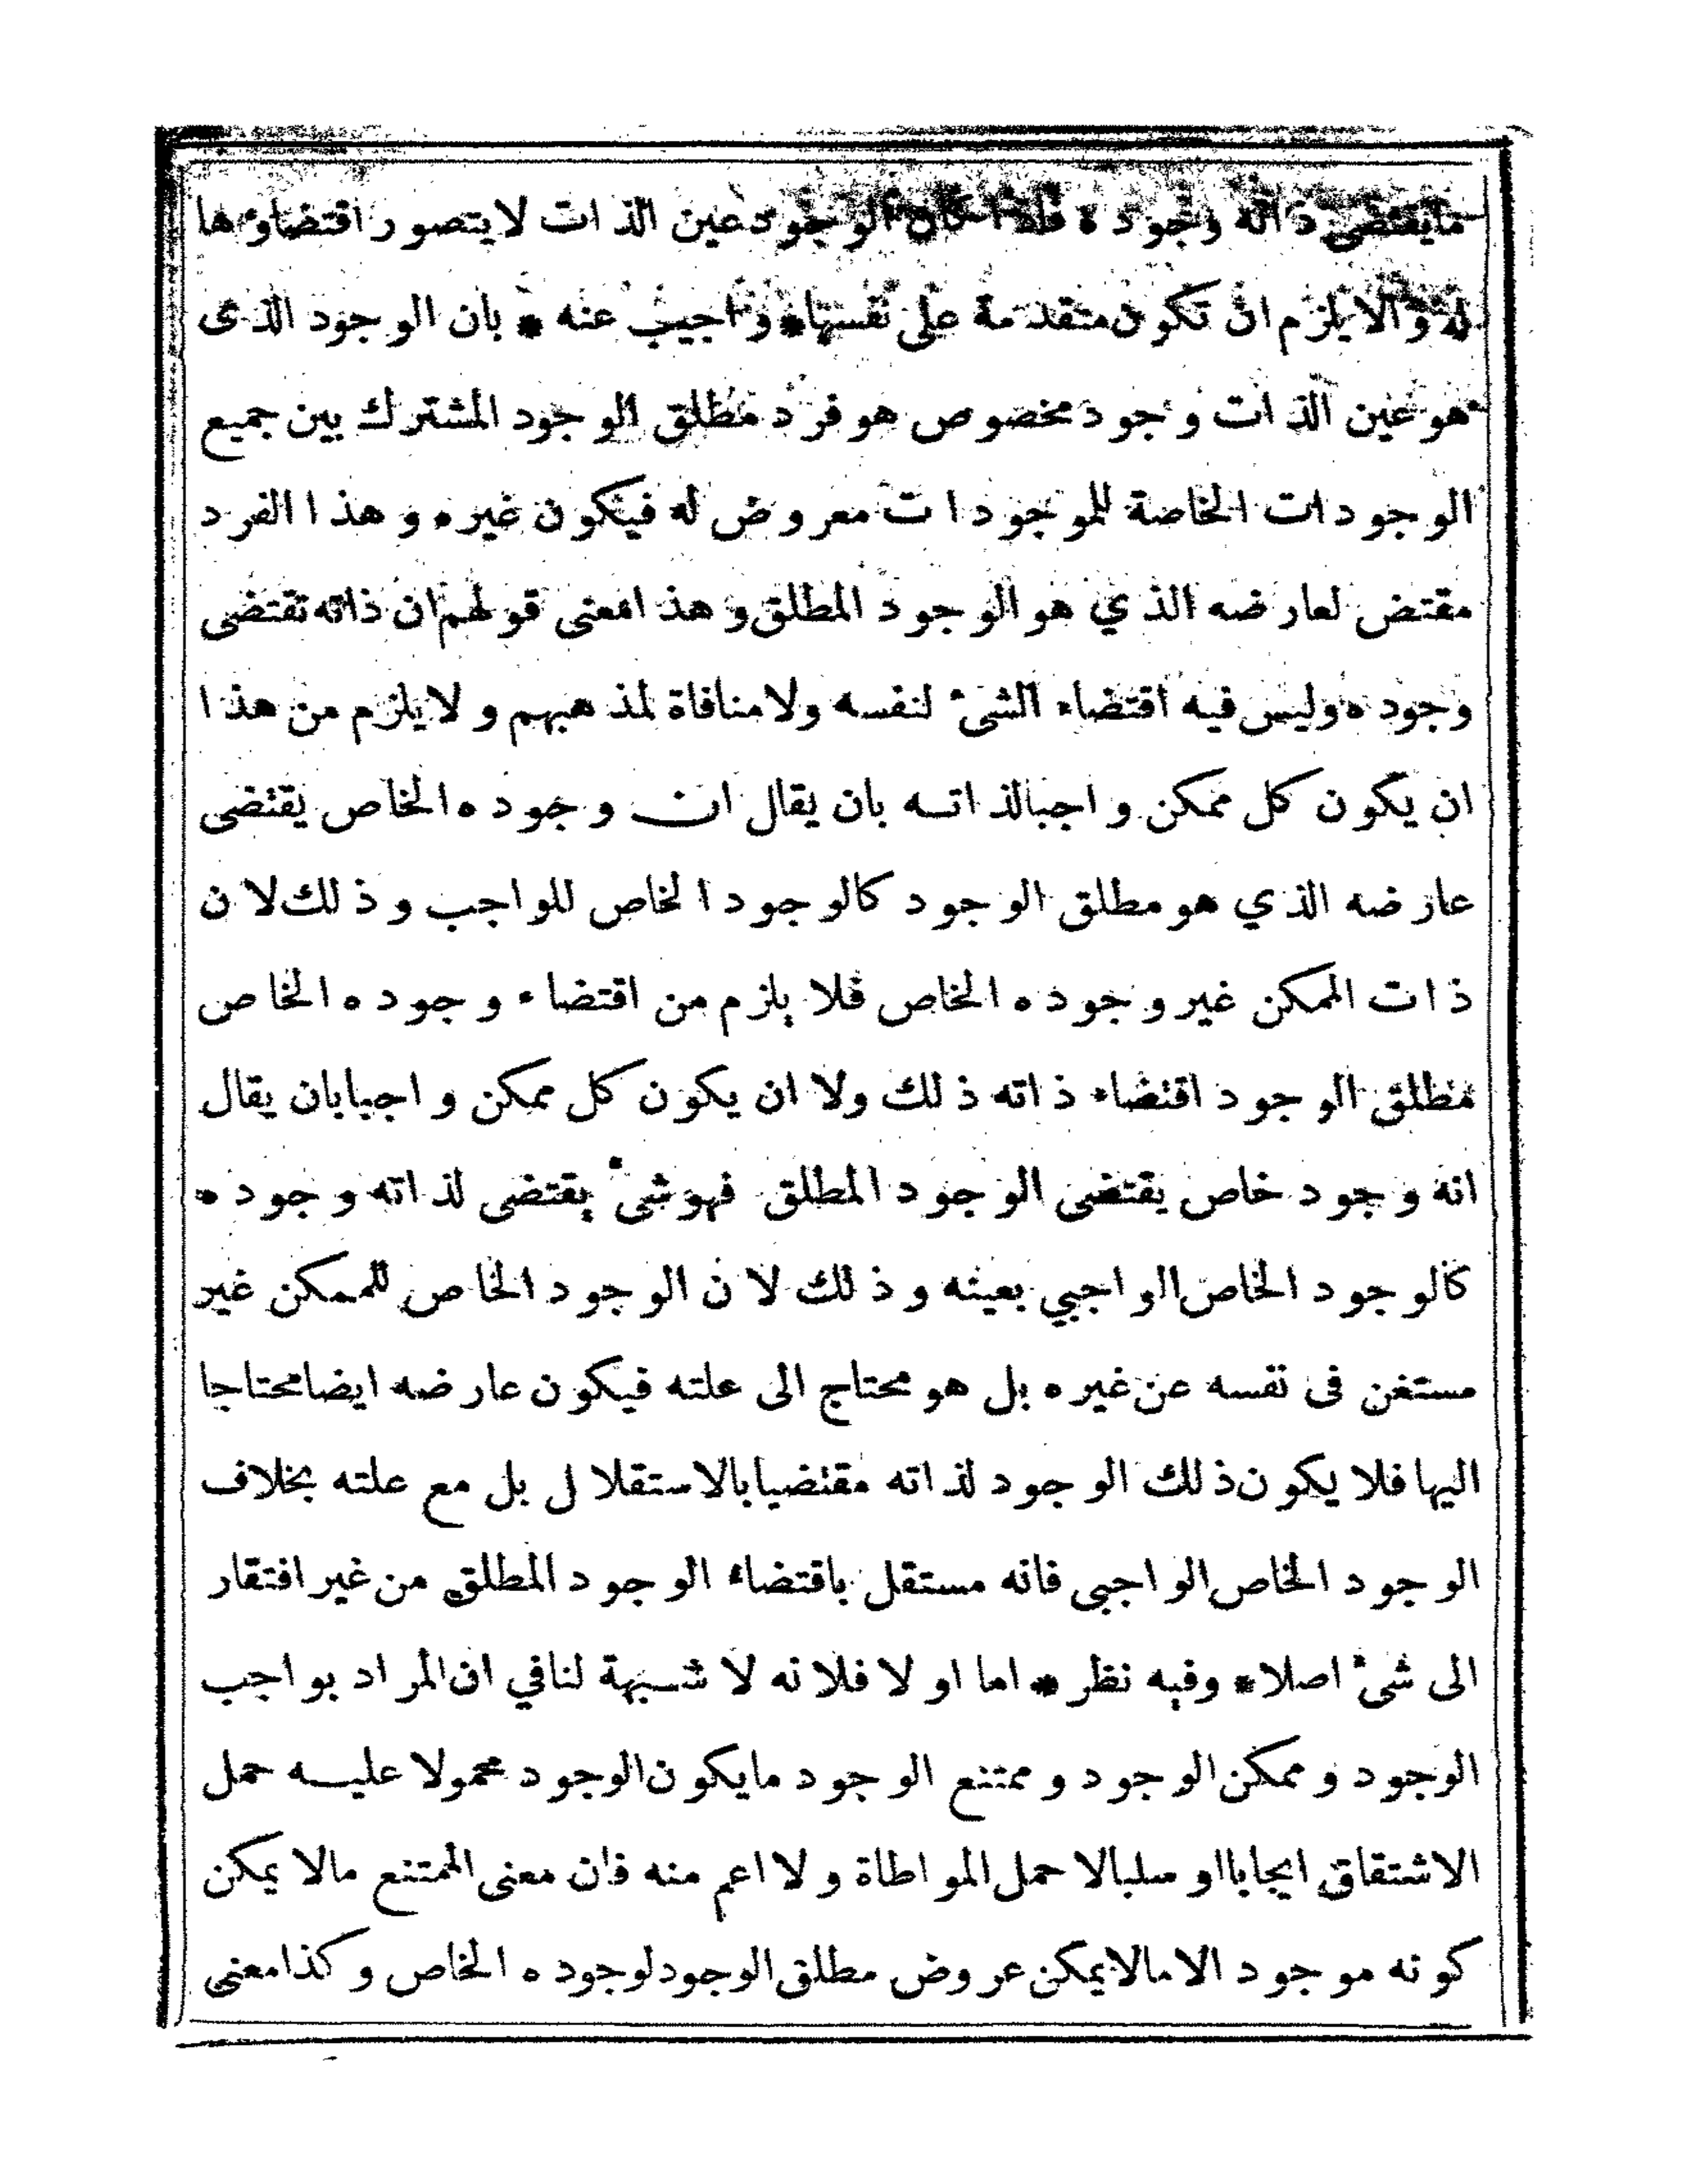 مايقتضى ذاته وجوده فاذا كان الوجود عين الذات لايتصور اقتضاؤها
له والايلزم ان تكون متقدمة على نفسها* واجيب عنه * بان الوجود الذى
هو عين الذات وجود مخصوص هو فرد مطلق الوجود المشترك بين جميع
الوجودات الخاصة للموجودات معروض له فيكون غيره وهذا الفرد
مقتض لعارضه الذي هو الوجود المطلق وهذا معنى قولهم ان ذاته تقتضى
وجوده وليس فيه اقتضاء الشئ لنفسه ولا منافاة لمذهبهم ولا يلزم من هذا
ان يكون كل ممكن واجبا لذاته بان يقال ان وجوده الخاص يقتضى
عارضه الذي هو مطلق الوجود كالوجود الخاص للواجب وذلك لان
ذات الممكن غير وجوده الخاص فلا يلزم من اقتضاء وجوده الخاص
مطلق الوجود اقتضاء ذاته ذلك ولا ان يكون كل ممكن واجبا بان يقال
انه وجود خاص يقتضى الوجود المطلق فهو شئ يقتضى لذاته وجوده
كالوجود الخاص الواجبي بعينه وذلك لان الوجود الخاص للممكن غير
مستغن فى نفسه عن غيره بل هو محتاج الى علته فيكون عارضه ايضا محتاجا
اليها فلا يكون ذلك الوجود لذاته مقتضيا بالاستقلال بل مع علته بخلاف
الوجود الخاص الواجبى فانه مستقل باقتضاء الوجود المطلق من غير افتقار
الى شئ اصلا* وفيه نظر * اما اولا فلانه لا شبهة لنافي ان المراد بواجب
الوجود وممكن الوجود وممتنع الوجود مايكون الوجود محمولا عليه حمل
الاشتقاق ايجابا او سلبا لا حمل المواطاة ولا اعم منه فان معنى الممتنع مالا يمكن
كونه موجود الا مالا يمكن عروض مطلق الوجود لوجوده الخاص وكذا معنى